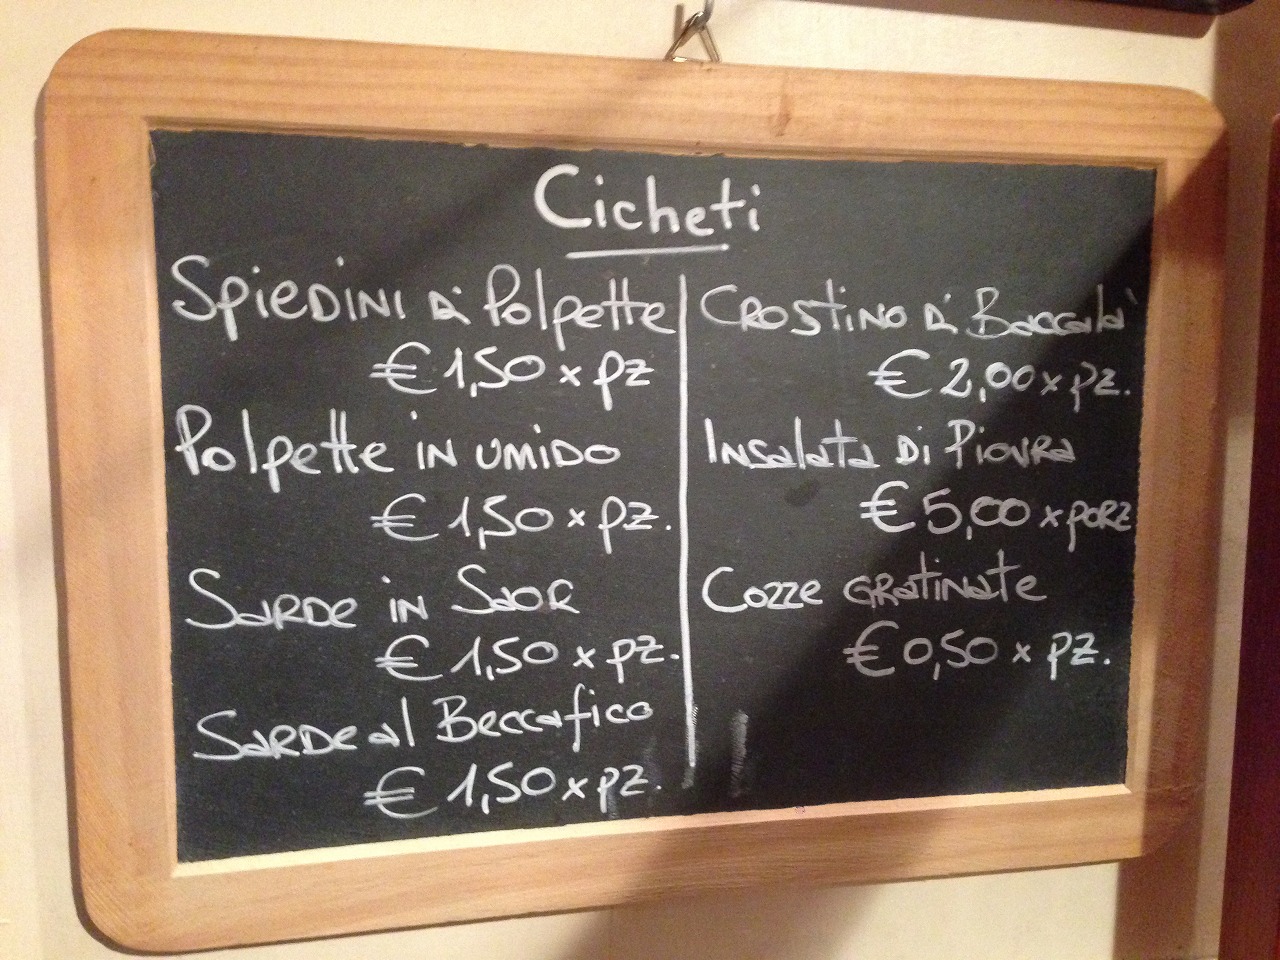 Cicheti
Spiedini di Polpette
€ 1,50 x pz
Polpette in umido
€ 1,50 x pz.
Sarde in Saor
€ 1,50 x pz.
Sarde al Beccafico
€ 1,50 x pz.
Crostino di Baccalà
€ 2,00 x pz.
Insalata di Piovra
€ 5,00 x porz
Cozze gratinate
€ 0,50 x pz.